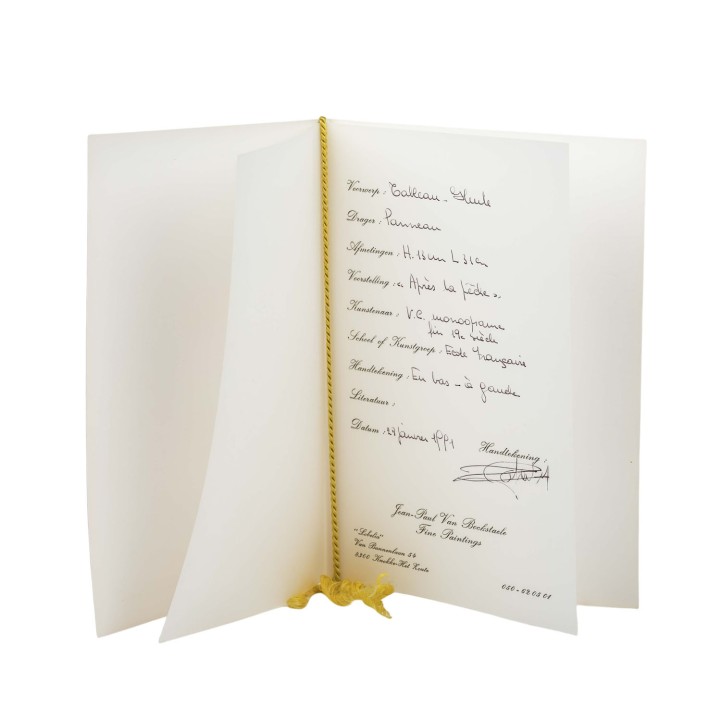 Voorwerp : Tableau - Huile
Drager : Panneau
Afmetingen : H. 13cm L 31cm
Voorstelling : « Après la pêche ».
Kunstenaar : V.C. monogramme
fin 19e siècle
School of Kunstgroep : Ecole Française
Handtekening : En bas - à gauche
Literatuur :
Datum : janvier 1991
Handtekening :
Jean-Paul Van Bockstaele
Fine Paintings
"Lobelia"
Van Bunnenlaan 54
8300 Knokke-Het Zoute
050-62 05 01